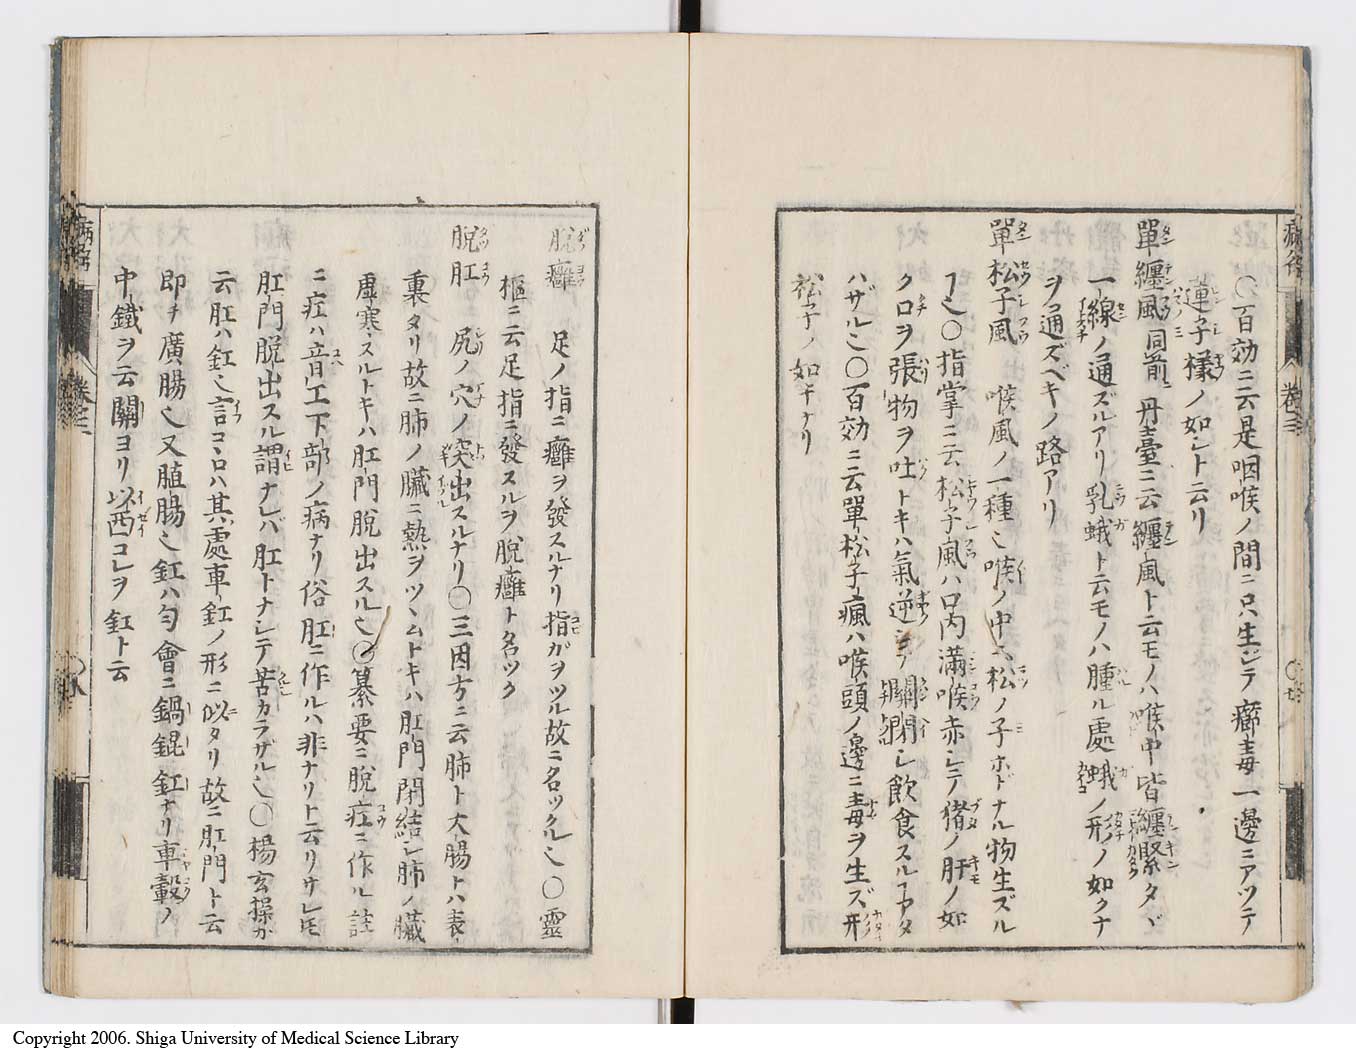 〇百効ニ云是咽喉ノ間ニ只生ジテ癤毒一邊ニアツテ
蓮子樣ノ如シト云リ
單纏風 同前 丹臺ニ云纏風ト云モノハ喉中皆纏緊タヾ
一線ノ通ズルアリ乳蛾ト云モノハ腫ル處蛾ノ形ノ如クナ
ヲ通ズベキノ路アリ
單松子風 喉風ノ一種也喉ノ中ヘ松ノ子ホドナル物生ズル
也〇指掌ニ云松子風ハ口内滿喉赤シテ猪ノ肝ノ如
クロヲ張物ヲ吐トキハ氣逆シテ關閉シ飲食スルヿアタ
ハザル也〇百効ニ云單松子瘋ハ喉頭ノ邊ニ毒ヲ生ズ形
松子ノ如キナリ
病名 卷之三
脫癰 足ノ指ニ癰ヲ發スルナリ指ガヲツル故ニ名ツクル也〇靈
樞ニ云足指ニ發スルヲ脫癰ト名ツク
脫肛 尻ノ穴ノ突出スルナリ〇三因方ニ云肺ト大腸トハ表
裏タリ故ニ肺ノ臟ニ熱ヲツヽムトキハ肛門閉結シ肺ノ臟
虛寒スルトキハ肛門脫出スル也〇纂要ニ脫疘ニ作ル註
ニ疘ハ音工下部ノ病ナリ俗肛ニ作ルハ非ナリト云リサレ𪜈
肛門脫出スル謂ナレバ肛トナシテ苦カラザル也〇楊玄操ガ
云肛ハ釭也言コヽロハ其處車釭ノ形ニ似タリ故ニ肛門ト云
即チ廣腸也又䐈腸也釭ハ匀會ニ鍋錕釭ナリ車轂ノ
中鐵ヲ云關ヨリ以西コレヲ釭ト云
病名 卷之三
Copyright 2006. Shiga University of Medical Science Library